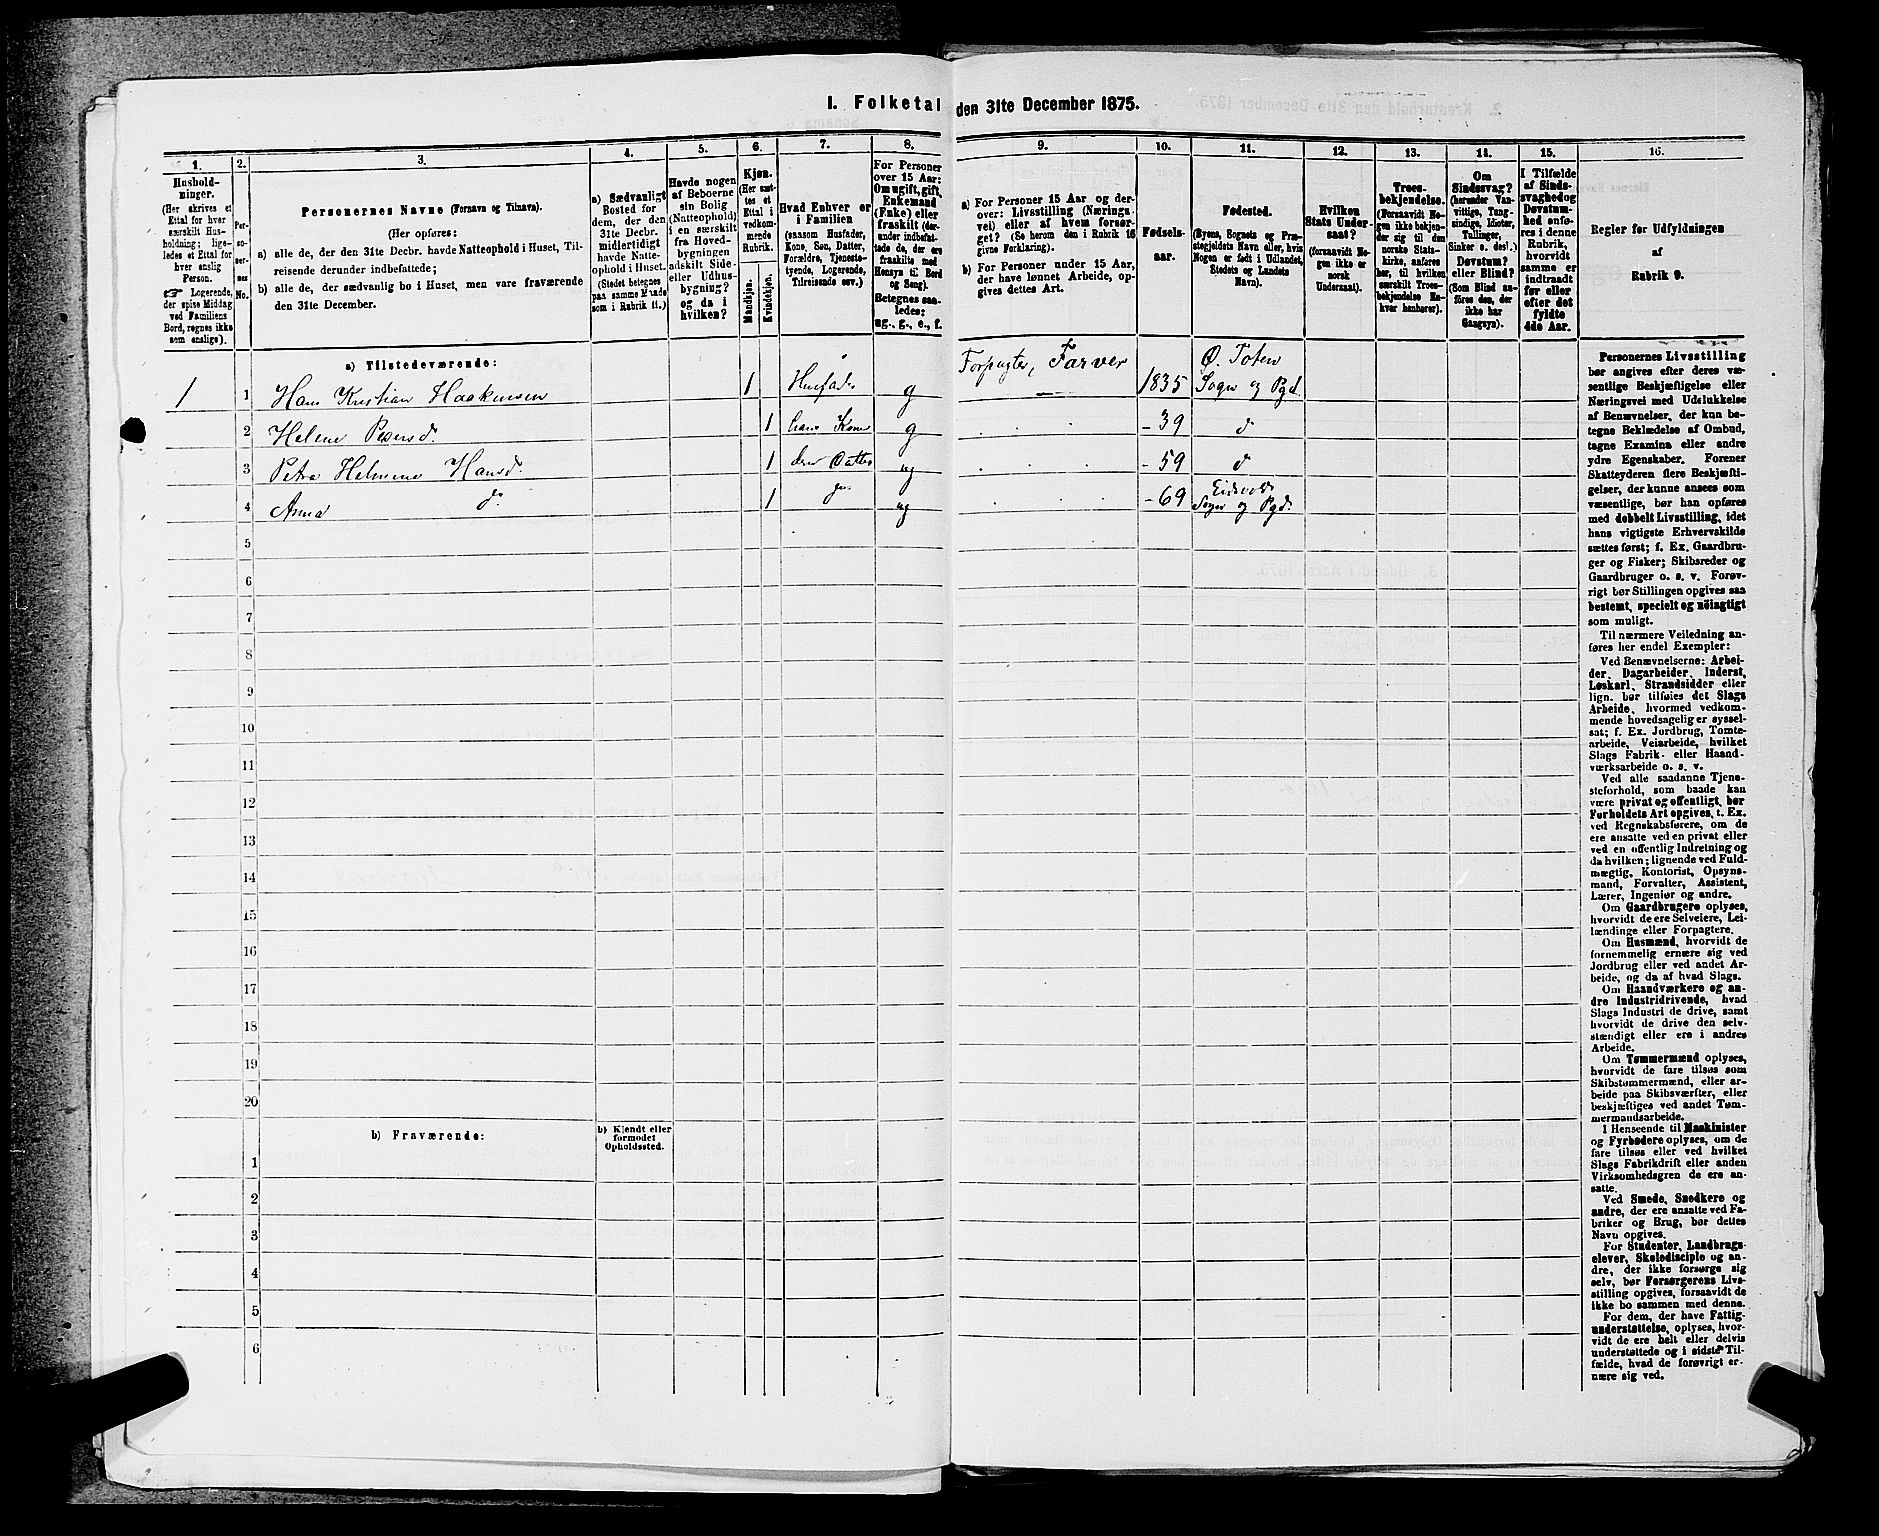 I. Folketal den 31te December 1875.
1. 2. 3. 4. 5. 6. 7. 8. 9. 10. 11. 12. 13. 14. 15. 16.
Hushold-
ninger.
(Her skrives et
Ettal for hver
særskilt Hus-
holdning; lige-
ledes et Ettal for
hver enslig
Person.
☞ Logerende,
der spise Middag
ved Familiens
Bord, regnes ikke
som enslige).
Per-
so-
ner-
nes
No.
Personernes Navne (Fornavn og Tilnavn).
(Her opføres:
a) alle de, der den 31te Decbr. havde Natteophold i Huset, Til-
reisende derunder indbefattede;
b) alle de, der sædvanlig bo i Huset, men vare fraværende
den 31te December.
a) Sædvanligt
Bosted for
dem, der den
31te Decbr.
midlertidigt
havde Natte-
ophold i Huset.
(Stedet betegnes
paa samme Maade
som i Rubrik 11.)
Havde nogen
af Beboerne
sin Bolig
(Natteophold)
i en særskilt
fra Hoved-
bygningen
adskilt Side-
eller Udhus-
bygning?
og da i
hvilken?
Kjøn.
(Her sæt-
tes et
Ettal i
vedkom-
mende
Rubrik.
Mandkjøn.
Kvindekjøn.
Hvad Enhver er
i Familien
(saasom Husfader,
Kone, Søn, Datter,
Forældre, Tjeneste-
tyende, Logerende,
Tilreisende osv.)
For Personer
over 15 Aar:
Om ugift, gift,
Enkemand
(Enke) eller
fraskilt (her-
under indbefat-
tede de, der ere
fraskilte med
Hensyn til Bord
og Seng).
Betegnes saa-
ledes:
ug., g., e., f.
a) For Personer 15 Aar og der-
over: Livsstilling (Nærings-
vei) eller af hvem forsør-
get? (Se herom den i Rubrik 16
givne Forklaring).
b) For Personer under 15 Aar,
der have lønnet Arbeide, op-
gives dettes Art.
Fødsels-
aar.
Fødested.
(Byens, Sognets og Præ-
stegjeldets Navn eller, hvis
Nogen er født i Udlandet,
Stedets og Landets
Navn).
Hvilken
Stats Under-
saat?
(forsaavidt No-
gen ikke er
norsk
Undersaat).
Troes-
bekjendelse.
(Forsaavidt No-
gen ikke bekjen-
der sig til den
norske Stats-
kirke, anføres
her, til hvilken
særskilt Troes-
bekjendelse En-
hver henhører).
Om
Sindssvag?
(herunder Van-
vittige, Tung-
sindige, Idioter,
Tullinger,
Sinker o. desl.)
Døvstum?
eller Blind?
(Som Blind an-
føres den, der
ikke har
Gangsyn).
I Tilfælde
af Sinds-
svaghed og
Døvstum-
hed anfø-
res i denne
Rubrik,
hvorvidt
samme er
indtraadt
før eller
efter det
fyldte
4de Aar.
Regler for Udfyldningen
af
Rubrik 9.
a) Tilstedeværende:
1 1 Hans Kristian Haakensen 1 Husfader g Forpagter, Farver 1835 Ø. Toten Sogn og Pgd.
2 Helene Pedersd. 1 hans Kone g - 39 d
3 Petra Helmine Hansd. 1 deres Datter ug - 59 d
4 Anna do 1 do ug - 69 Eidsvold Sogn og Pgd.
5
6
7
8
9
10
11
12
13
14
15
16
17
18
19
20
b) Fraværende:
b) Kjendt eller
formodet
Opholdssted.
1
2
3
4
5
6
Personernes Livsstilling
bør angives efter deres væ-
sentlige Beskjæftigelse eller
Næringsvei med Udelukkelse
af Benævnelser, der kun be-
tegne Beklædelse af Ombud,
tagne Examina eller andre
ydre Egenskaber. Forener
Skatteyderen flere Beskjæfti-
gelser, der kunne ansees som
væsentlige, bør han opføres
med dobbelt Livsstilling, idet
hans vigtigste Erhvervskilde
sættes først; f. Ex. Gaardbru-
ger og Fisker; Skibsreder og
Gaardbruger o. s. v. Forøv-
rigt bør Stillingen opgives saa
bestemt, specielt og nöiagtigt
som muligt.
Til nærmere Veiledning an-
føres her endel Exempler:
Ved Benævnelserne: Arbei-
der, Dagarbeider, Inderst,
Løskarl, Strandsidder eller
lign. bør tilføies det Slags
Arbeide, hvormed vedkom-
mende hovedsagelig er syssel-
sat; f. Ex. Jordbrug, Tomte-
arbeide, Veiarbeide, hvilket
Slags Fabrik- eller Haand-
værksarbeide o. s. v.
Ved alle saadanne Tjene-
steforhold, som baade kan
være privat og offentligt, bør
Forholdets Art opgives, t. Ex.
ved Regnskabsførere, om de
ere ansatte ved en privat eller
ved en offentlig Indretning og
da hvilken; lignende ved Fuld-
mægtig, Kontorist, Opsyns-
mand, Forvalter, Assistent,
Lærer, Ingeniør og andre.
Om Gaardbrugere oplyses,
hvorvidt de ere Selveiere, Lei-
lændinge eller Forpagtere.
Om Husmænd, hvorvidt de
fornemmelig ernære sig ved
Jordbrug eller ved andet Ar-
beide, og da af hvad Slags.
Om Haandværkere og an-
dre Industridrivende, hvad
Slags Industri de drive, samt
hvorvidt de drive den selv-
stændigt eller ere i andres
Arbeide.
Om Tømmermænd oplyses,
hvorvidt de fare tilsøs som
Skibstømmermænd, eller ar-
beide paa Skibsværfter, eller
beskjæftiges ved andet Tøm-
mermandsarbeide.
I Henseende til Maskinister
og Fyrbødere oplyses, om de
fare tilsøs eller ved hvilket
Slags Fabrikdrift eller anden
Virksomhedsgren de ere an-
satte.
Ved Smede, Snedkere og
andre, der ere ansatte ved Fa-
briker og Brug, bør dettes
Navn opgives.
For Studenter, Landbrugs-
elever, Skoledisciple og an-
dre, der ikke forsørge sig
selv, bør Forsørgerens Livs-
stilling opgives, forsaavidt de
ikke bo sammen med denne.
For dem, der have Fattig-
understøttelse, oplyses, hvor-
vidt de ere helt eller delvis
understøttede og i sidste Til-
fælde, hvad de forøvrigt er-
nære sig ved.